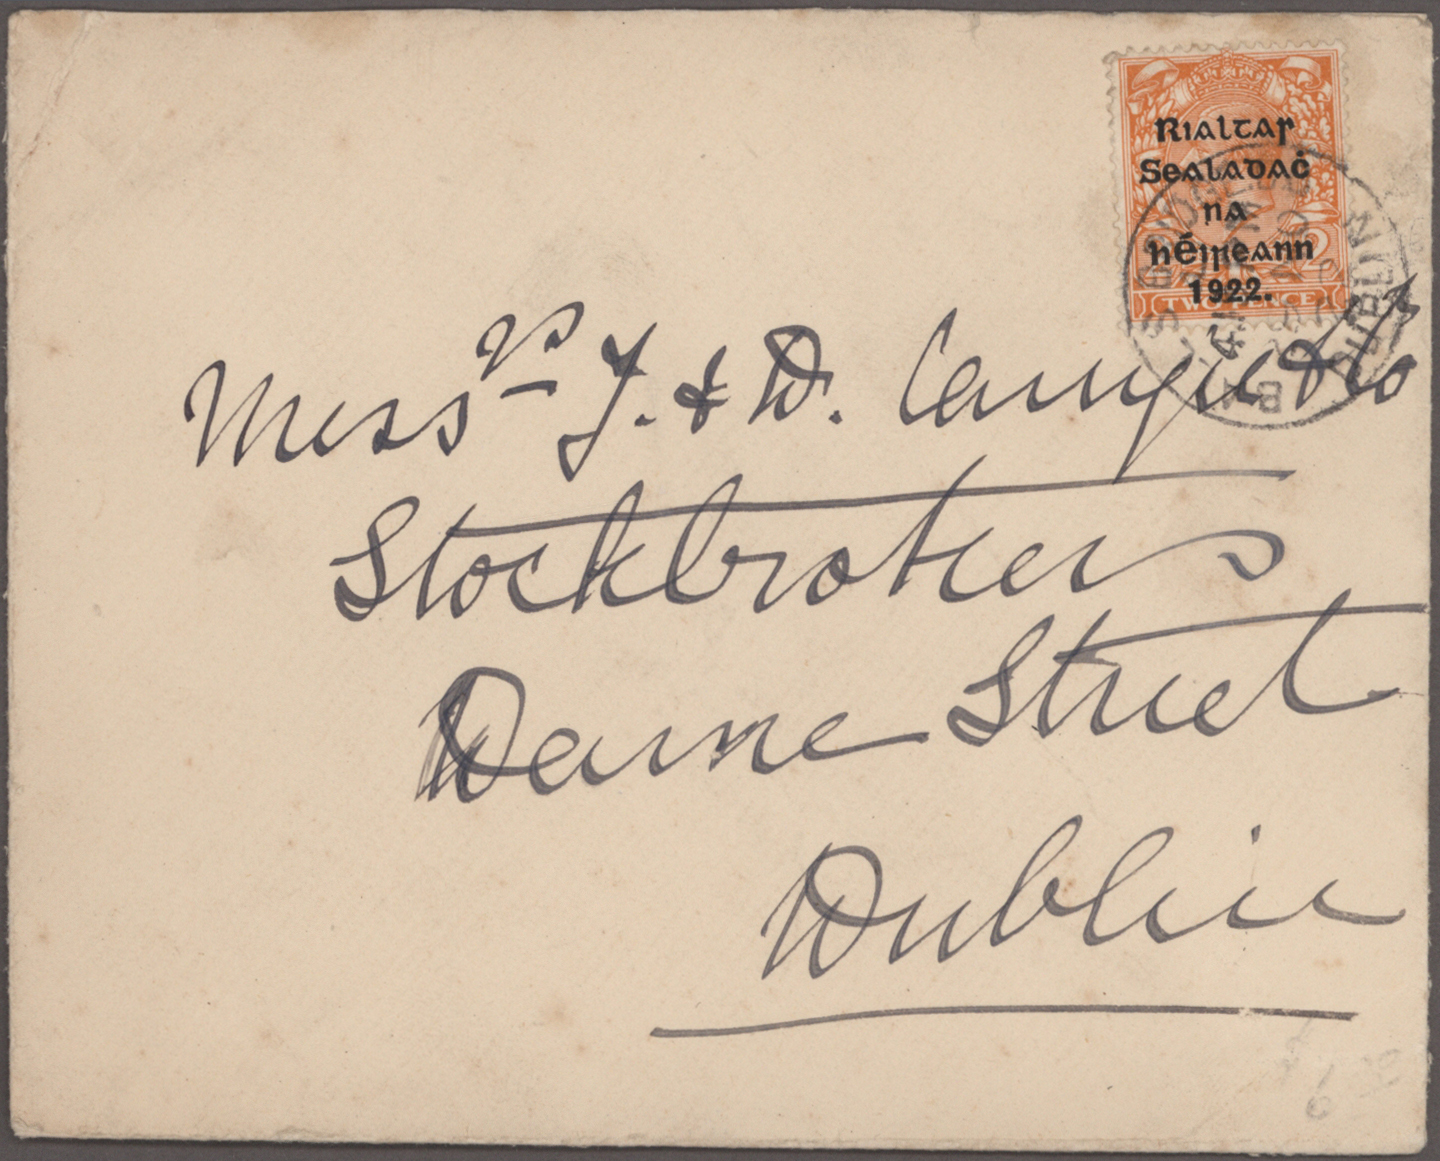 Rialtas
Sealadaċ
na
hÉireann
1922.
2
TWO PENCE
DUBLIN
Messrs J. & D. & Co
Stockbrokers
Dame Street
Dublin